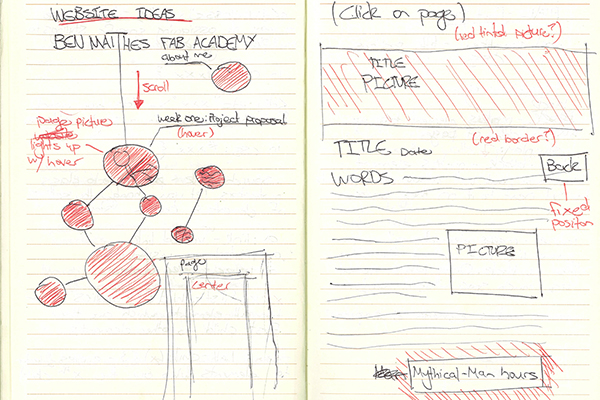 WEBSITE IDEAS
BEN MATTHES FAB ACADEMY
about me
scroll
week one: Project proposal
(hover)
page picture
lights up
w/ hover
page
center
(Click on page)
(red tinted picture?)
TITLE
PICTURE
(red border?)
TITLE Date
Back
WORDS
fixed
position
PICTURE
Mythical-Man hours